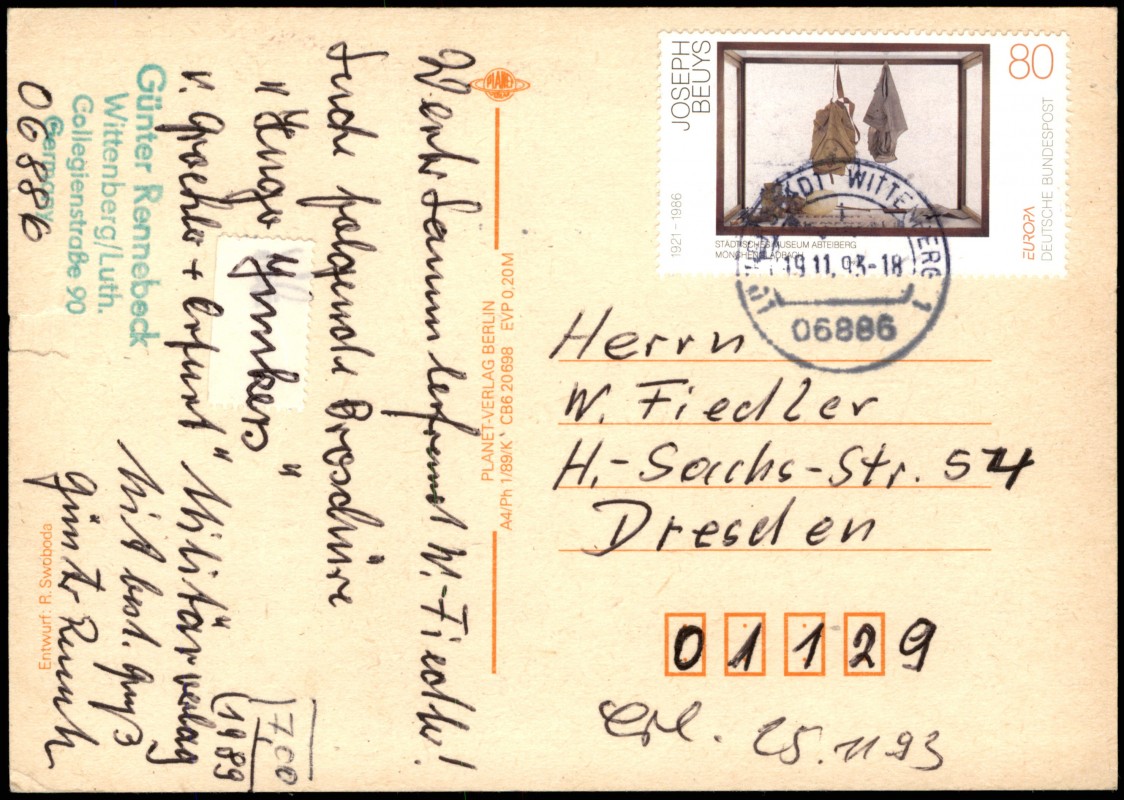 Werter Sammlerfreund W. Fiedler!
Suche folgende Broschüre
"Hugo Junkers"
v. Groehler + Erfurt" Militärverlag
(1989
17,00
Mit best. Gruß
Günter
Günter Rennebeck
Wittenberg/Luth.
Collegienstraße 90
Germany
06886
Entwurf: R. Swoboda
PLANET
PLANET-VERLAG BERLIN
A4/Ph 1/89/K CB6 20698 EVP 0,20M
JOSEPH
BEUYS
1921–1986
80
STÄDTISCHES MUSEUM ABTEIBERG
MÖNCHENGLADBACH
EUROPA
DEUTSCHE BUNDESPOST
LUTHERSTADT WITTENBERG 1
19.11.93-18
06886
Herrn
W. Fiedler
H.-Sachs-Str. 54
Dresden
01129
Erl. 25.11.93